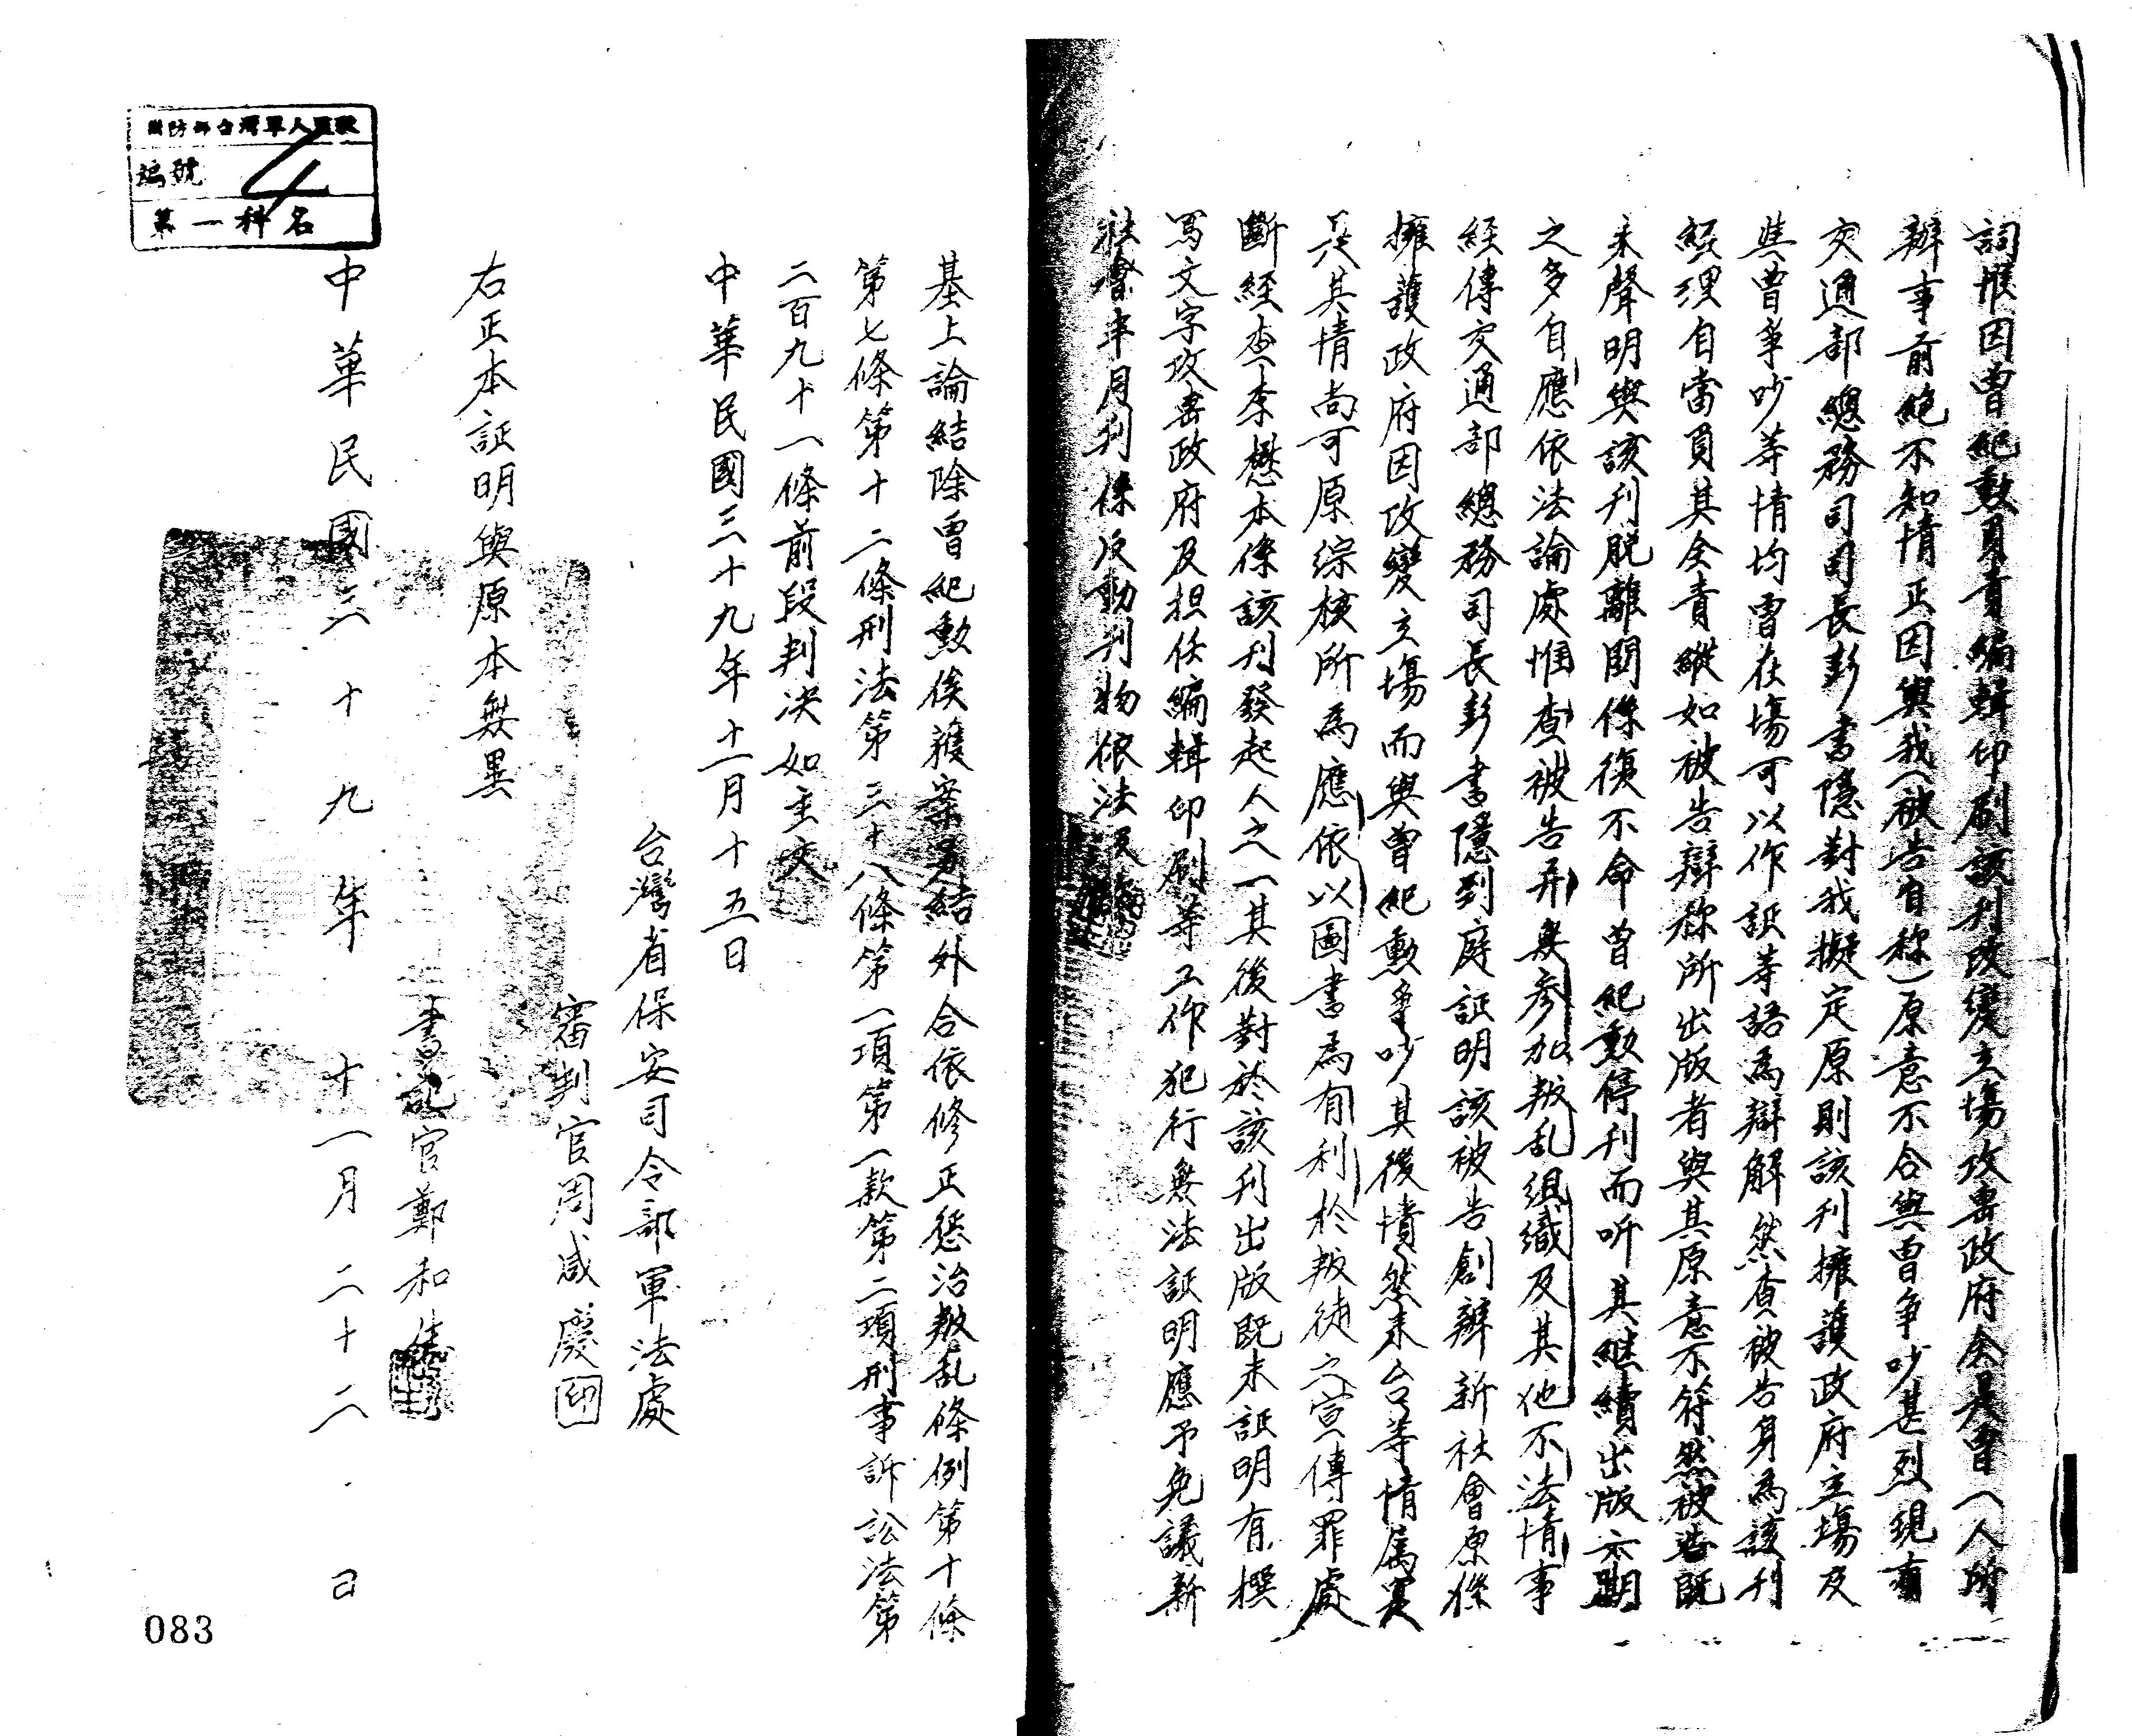 詞惟因曾紀勳負責編輯印刷該刊改變立場攻訐政府全是曾一人所
辦事前絕不知情正因與我(被告自称)原意不合與曾争吵甚烈現有
交通部總務司司長彭書隱對我擬定原則該刊擁護政府立場及
與曾爭吵等情均曾在場可以作証等語為辯解然查被告身為該刊
經理自當負其全責縱如被告辯称所出版者與其原意不符然被告既
未聲明與該刊脱離関係復不命曾紀勳停刊而听其継續出版六期
之多自應依法論處惟查被告并無參加叛乱組織及其他不法情事
経傳交通部總務司長彭書隱到庭証明該被告創辦新社會原係
擁護政府因改變立場而與曾紀勳爭吵其後憤然来台等情属實
其情尚可原綜核所為應依以圖書為有利於叛徒之宣傳罪處
斷経查李懋本係該刊發起人之一其後對於該刊出版既未証明有撰
寫文字攻訐政府及担任編輯印刷等工作犯行無法証明應予免議新
社會半月刊係反動刊物依法沒
基上論結除曾紀勳俟獲案另結外合依修正懲治叛乱條例第十條
第七條第十二條刑法第三十八條第一項第一款第二項刑事訴訟法第
二百九十一條前段判决如主文
中華民國三十九年十一月十五日
台灣省保安司令部軍法處
審判官周咸慶 印
右正本証明與原本無異
書記官鄭和
中華民國三十九年十一月二十二日
國防部台灣軍人監獄
編號 4
第一科 名
083